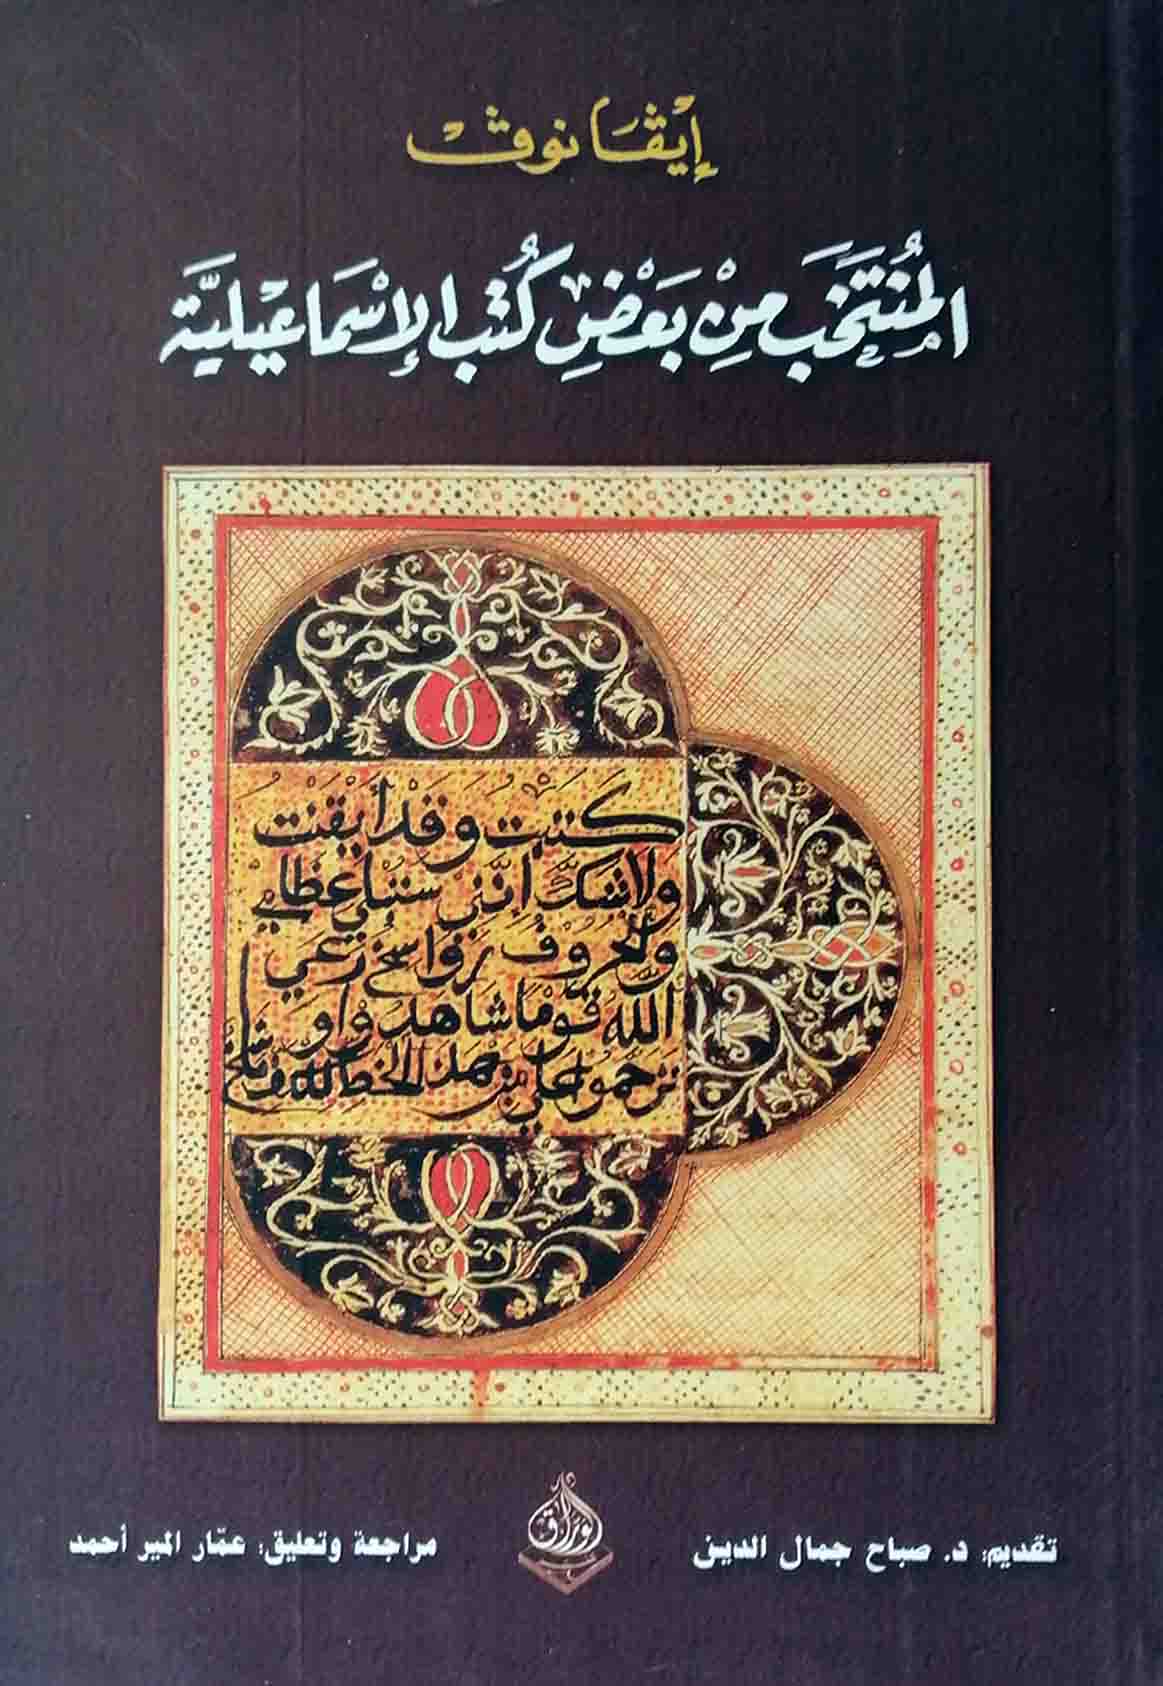 إيڤانوڤ
المُنتَخَب مِنْ بَعْضِ كُتب الإسْمَاعيْليَّة
كتبت وقد أيقنت
ولا شك أنني ستبلى عظامي
والحروف رواسخ رعى
الله قوما شاهدوا و
ترحموا على من بهذا الخط
الورّاق
تقديم: د. صباح جمال الدين
مراجعة وتعليق: عمّار المير أحمد